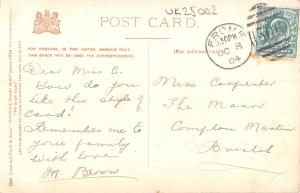 UK25002
POST CARD.
FOR POSTAGE, IN THE UNITED KINGDOM ONLY, THIS
SPACE MAY BE USED FOR CORRESPONDENCE.
(For Address
Dear Miss C.
How do you
like this style of
card?
Remember me to
your family
With love
M. Brown
FROME
5.50PM
OC 8
04
Miss Carpenter
The Manor
Compton Martin
Bristol